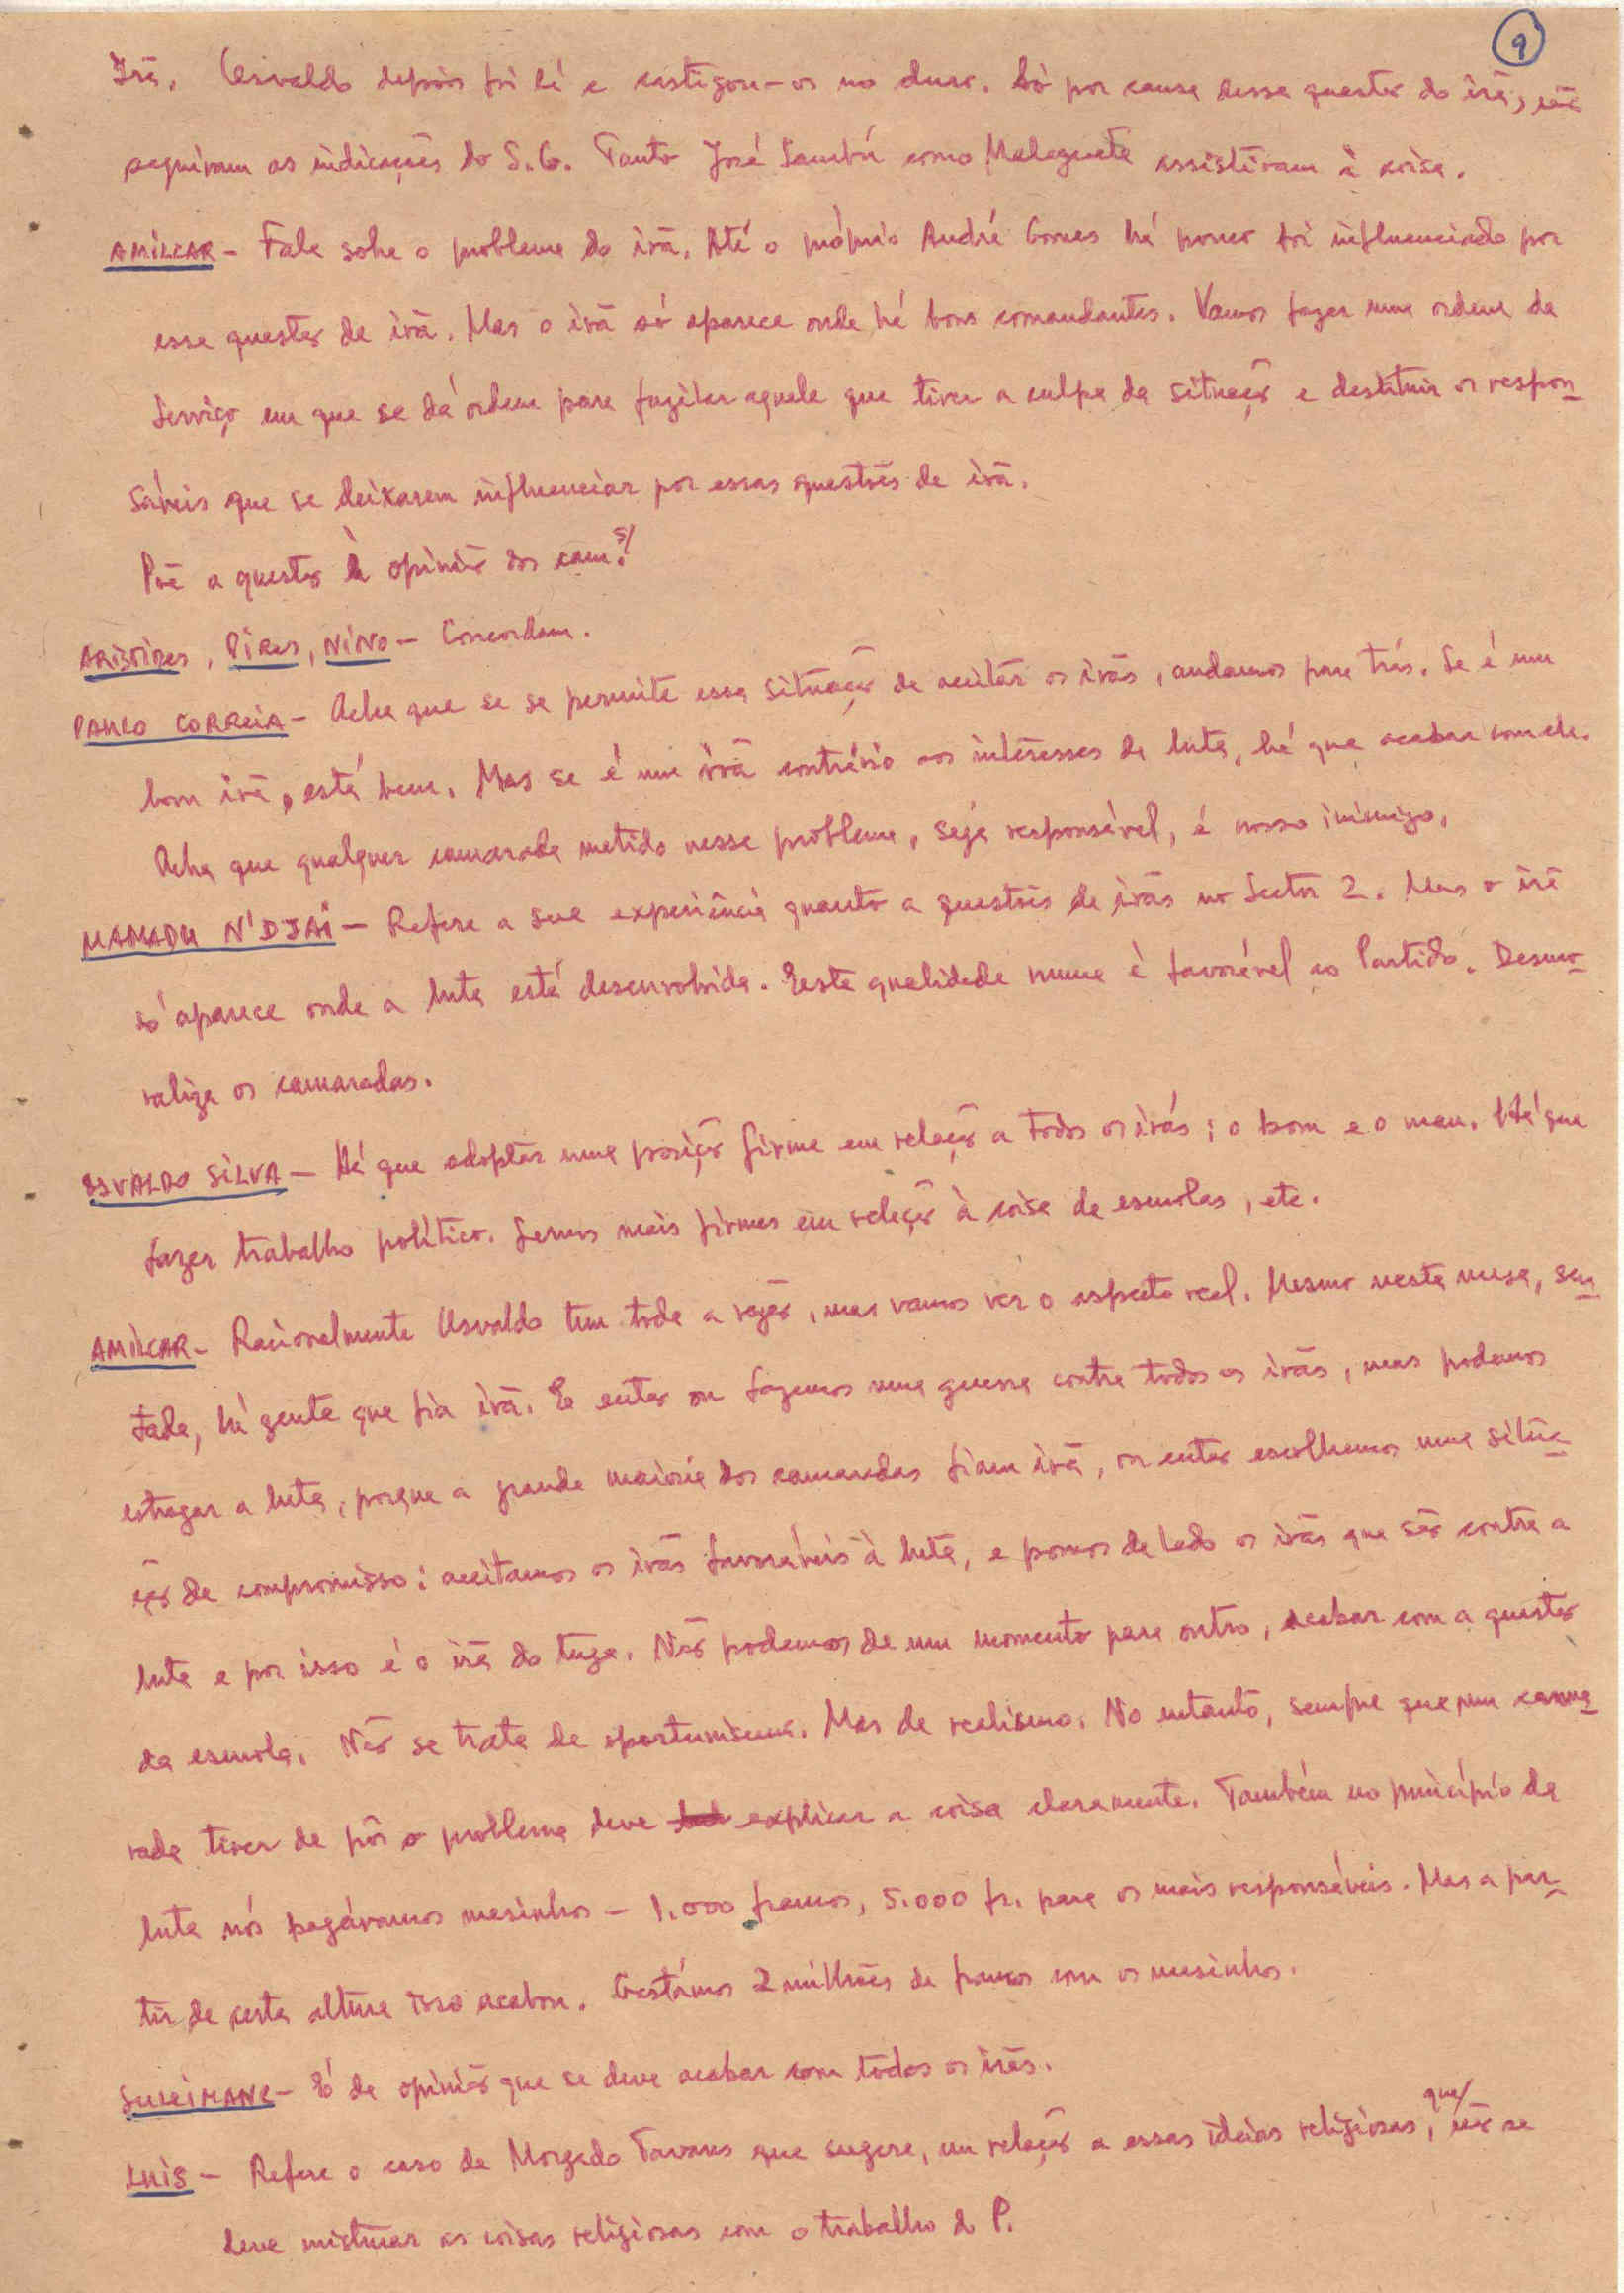 9
Irã. Osvaldo depois foi lá e castigou-os no duro. Só por causa dessa questão do irã, não
seguiram as indicações do S.G. Tanto José Sambú como Malagueta assistiram à coisa.
AMILCAR - Fala sobre o problema do irã. Até o próprio André Gomes há pouco foi influenciado por
essa questão de irã. Mas o irã só aparece onde há bons comandantes. Vamos fazer uma ordem de
serviço em que se dá ordem para fuzilar aquele que tiver a culpa da situação e destituir os respon-
sáveis que se deixarem influenciar por essas questões de irã.
Põe a questão à opinião dos cam.s/
ARISTIDES, PIRES, NINO - Concordam.
PAULO CORREIA - Acha que se se permite essa situação de aceitar os irãs, andamos para trás. Se é um
bom irã, está bem. Mas se é um irã contrário aos interesses da luta, há que acabar com ele.
Acha que qualquer camarada metido nesse problema, seja responsável, é nosso inimigo.
MAMADU N'DJAI - Refere a sua experiência quanto a questões de irãs no Sector 2. Mas o irã
só aparece onde a luta está desenvolvida. Esta qualidade nunca é favorável ao Partido. Desmo-
raliza os camaradas.
OSVALDO SILVA - Há que adoptar uma posição firme em relação a todos os irãs; o bom e o mau. Há que
fazer trabalho político. Sermos mais firmes em relação à coisa de esmolas, etc.
AMILCAR - Racionalmente Osvaldo tem toda a razão, mas vamos ver o aspecto real. Mesmo nesta mesa, sen-
tada, há gente que fia irã. E então ou fazemos uma guerra contra todos os irãs, mas podemos
estragar a luta, porque a grande maioria dos camaradas fiam irã, ou então escolhemos uma situa-
ção de compromisso: aceitamos os irãs favoráveis à luta, e pomos de lado os irãs que são contra a
luta e por isso é o irã do tuga. Não podemos de um momento para outro, acabar com a questão
da esmola. Não se trata de oportunismo. Mas de realismo. No entanto, sempre que um cama-
rada tiver de pôr o problema deve explicar a coisa claramente. Também no princípio da
luta nós pagávamos mesinhos - 1.000 francos, 5.000 fr. para os mais responsáveis. Mas a par-
tir de certa altura isso acabou. Gastámos 2 milhões de francos com os mesinhos.
SULEIMANE - É de opinião que se deve acabar com todos os irãs.
LUIS - Refere o caso de Morgado Tavares que sugere, em relação a essas ideias religiosas, que/ não se
deve misturar as coisas religiosas com o trabalho do P.